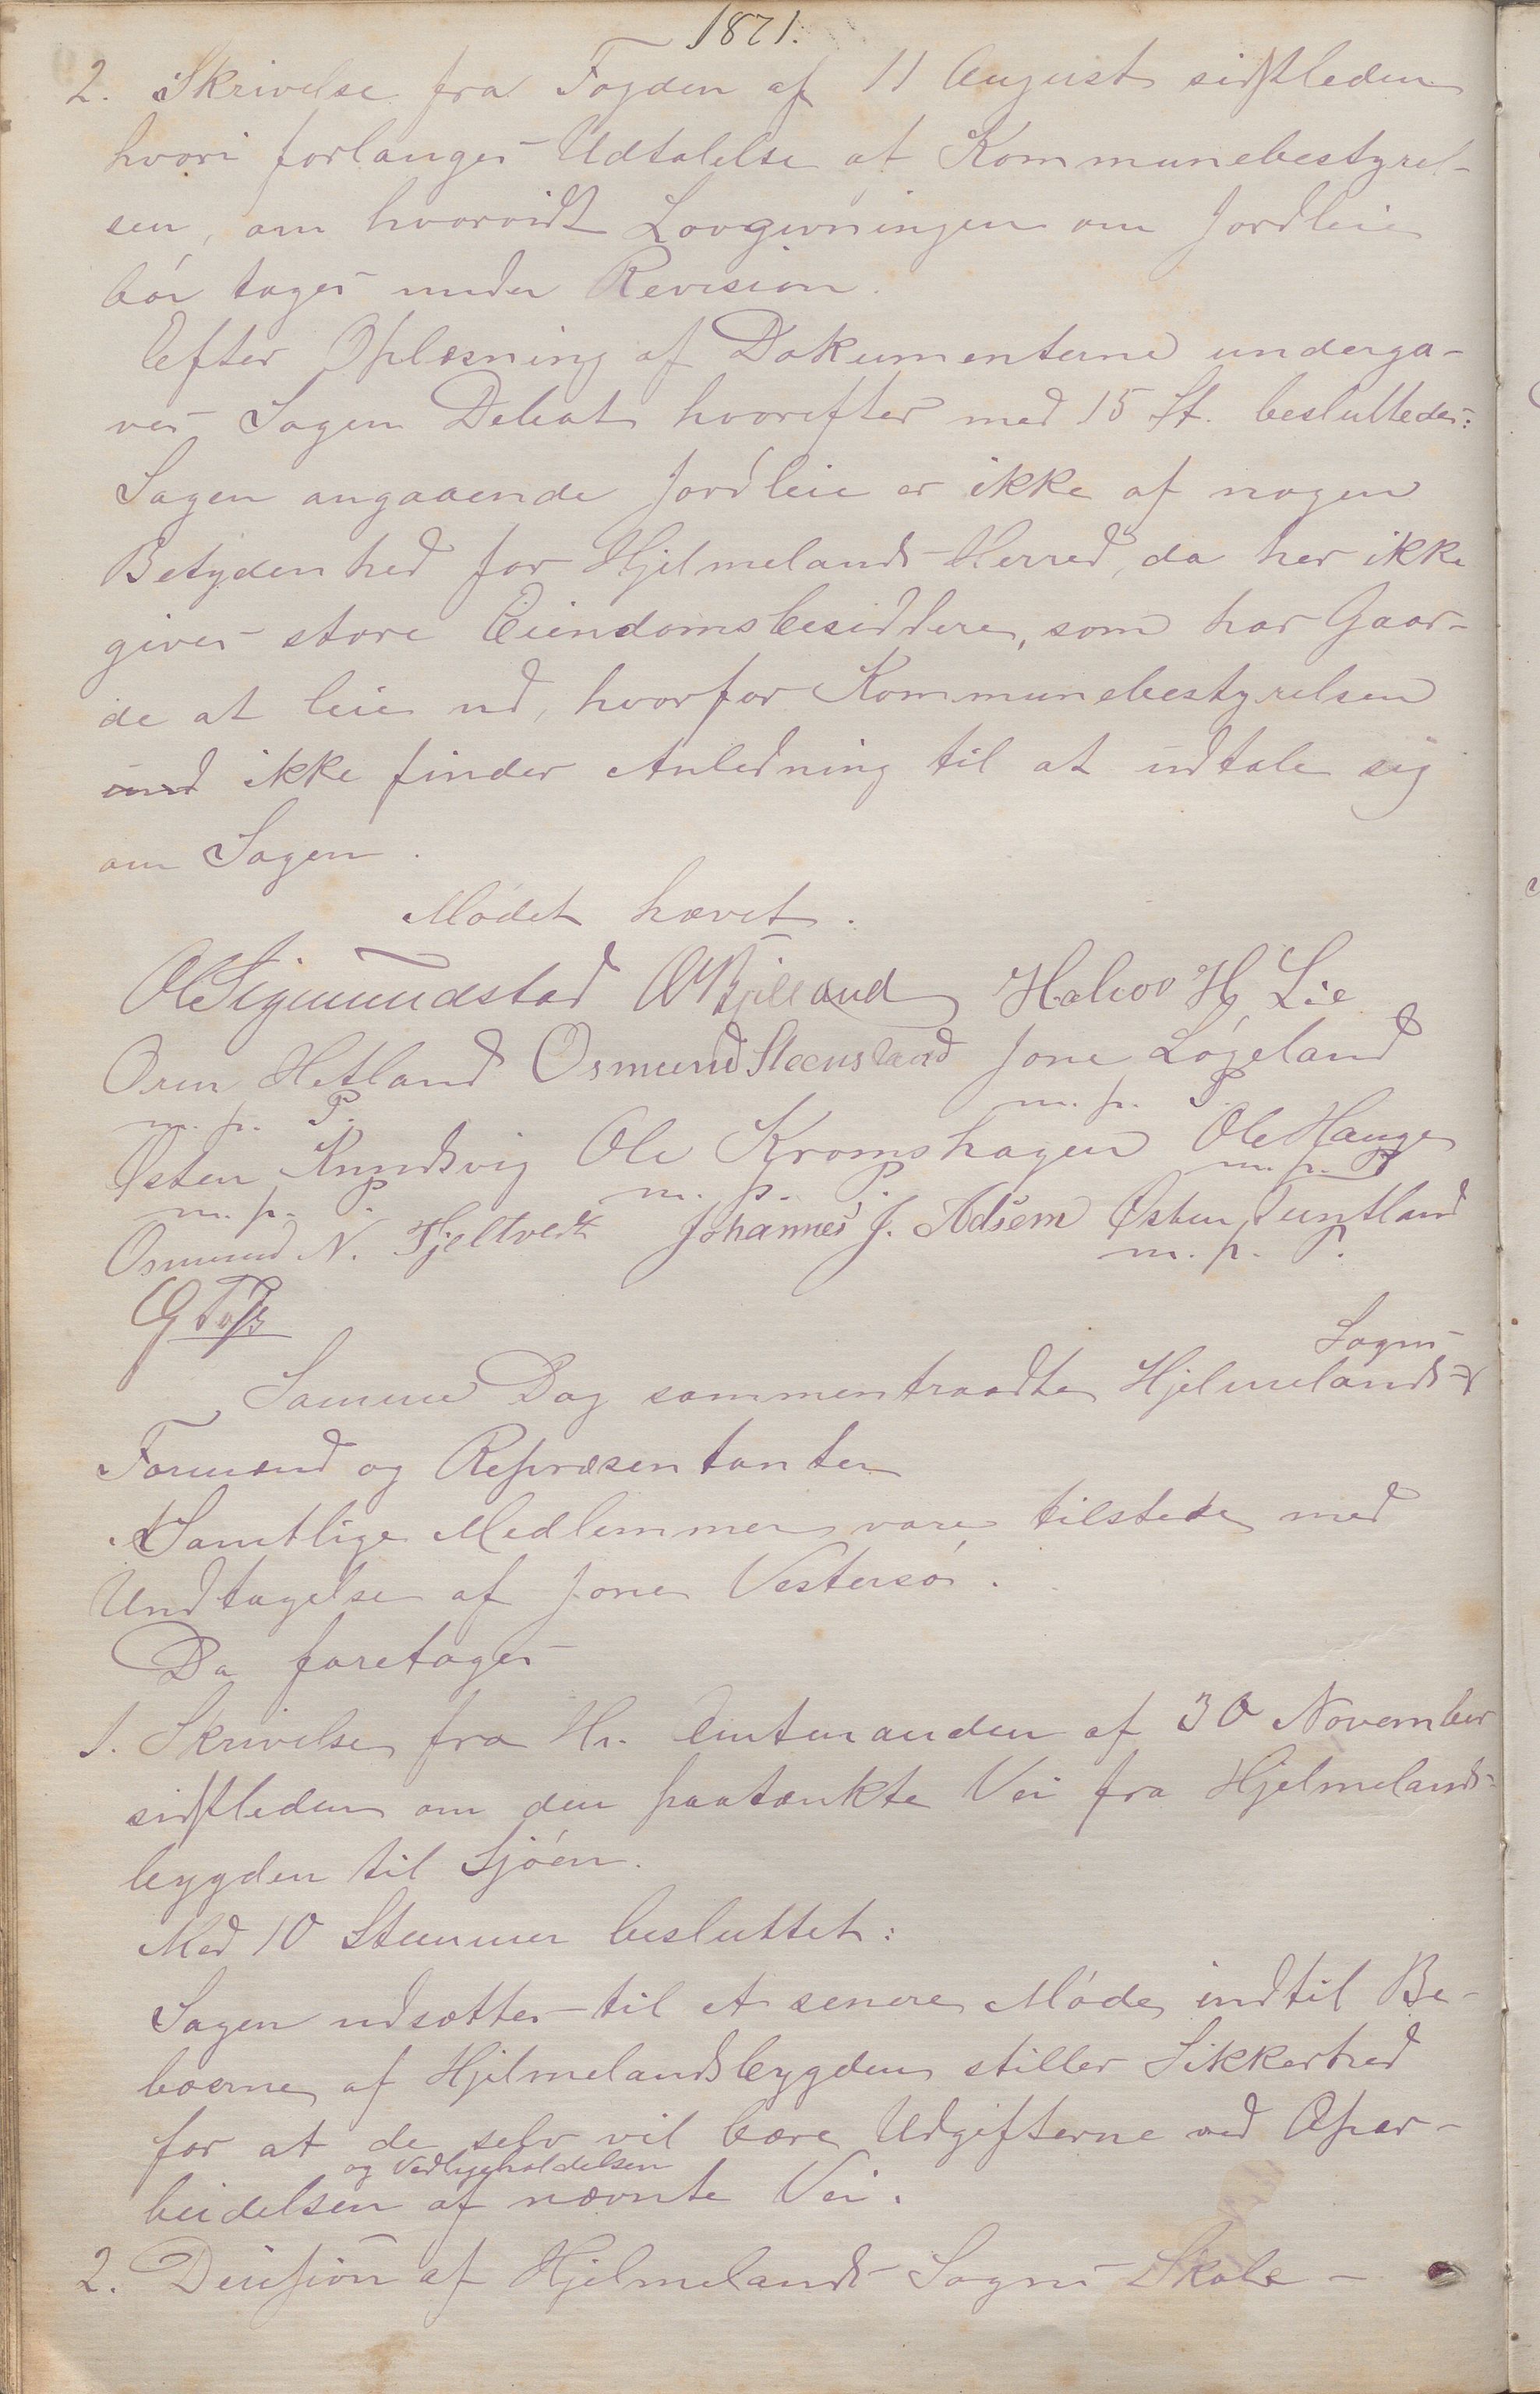 1871.
2. Skrivelse fra Fogden af 11 August sidstleden
hvori forlanges Udtalelse af Kommunebestyrel-
sen, om hvorvidt Lovgivningen om Jordleie
bór tages under Revision.
Efter Oplæsning af Dokumenterne underga-
ves Sagen Debat hvorefter med 15 St. besluttedes:
Sagen angaaende Jordleie er ikke af nogen
Betydenhed for Hjelmelands Herred, da her ikke
gives store Eiendomsbesiddere, som har Gaar-
de at leie ud, hvorfor Kommunebestyrelsen
ikke finder Anledning til at udtale sig
om Sagen.
Módet hævet.
O Sigmundstad Halvor H. Lie
Orm Hetland Osmund Steensland Jone Lógeland
m. p. P. m. p. P.
Østen Knudsvig Ole Kromshagen Ole Hauge
m. p. P. m. p. P. m. p. P.
Osmund N. Hjeltvedt Johannes J. Adsem Østen Tuntland
m. p. P.
Sogns-
Samme Dag sammentraadte Hjelmelands
Formænd og Repræsentanter
Samtlige Medlemmer vare tilstede med
Undtagelse af Jone Vestersó.
Da foretages
1. Skrivelse fra Hr. Amtmanden af 30 November
sidstleden om den paatænkte Vei fra Hjelmelands-
bygden til Sjóen.
Med 10 Stemmer besluttet:
Sagen udsættes til et senere Móde indtil Be-
boerne af Hjelmelandsbygden stiller Sikkerhed
for at de selv vil bære Udgifterne ved Opar-
og Vedligeholdelsen
beidelsen af nævnte Vei.
2. Decision af Hjelmelands Sogns Skole-